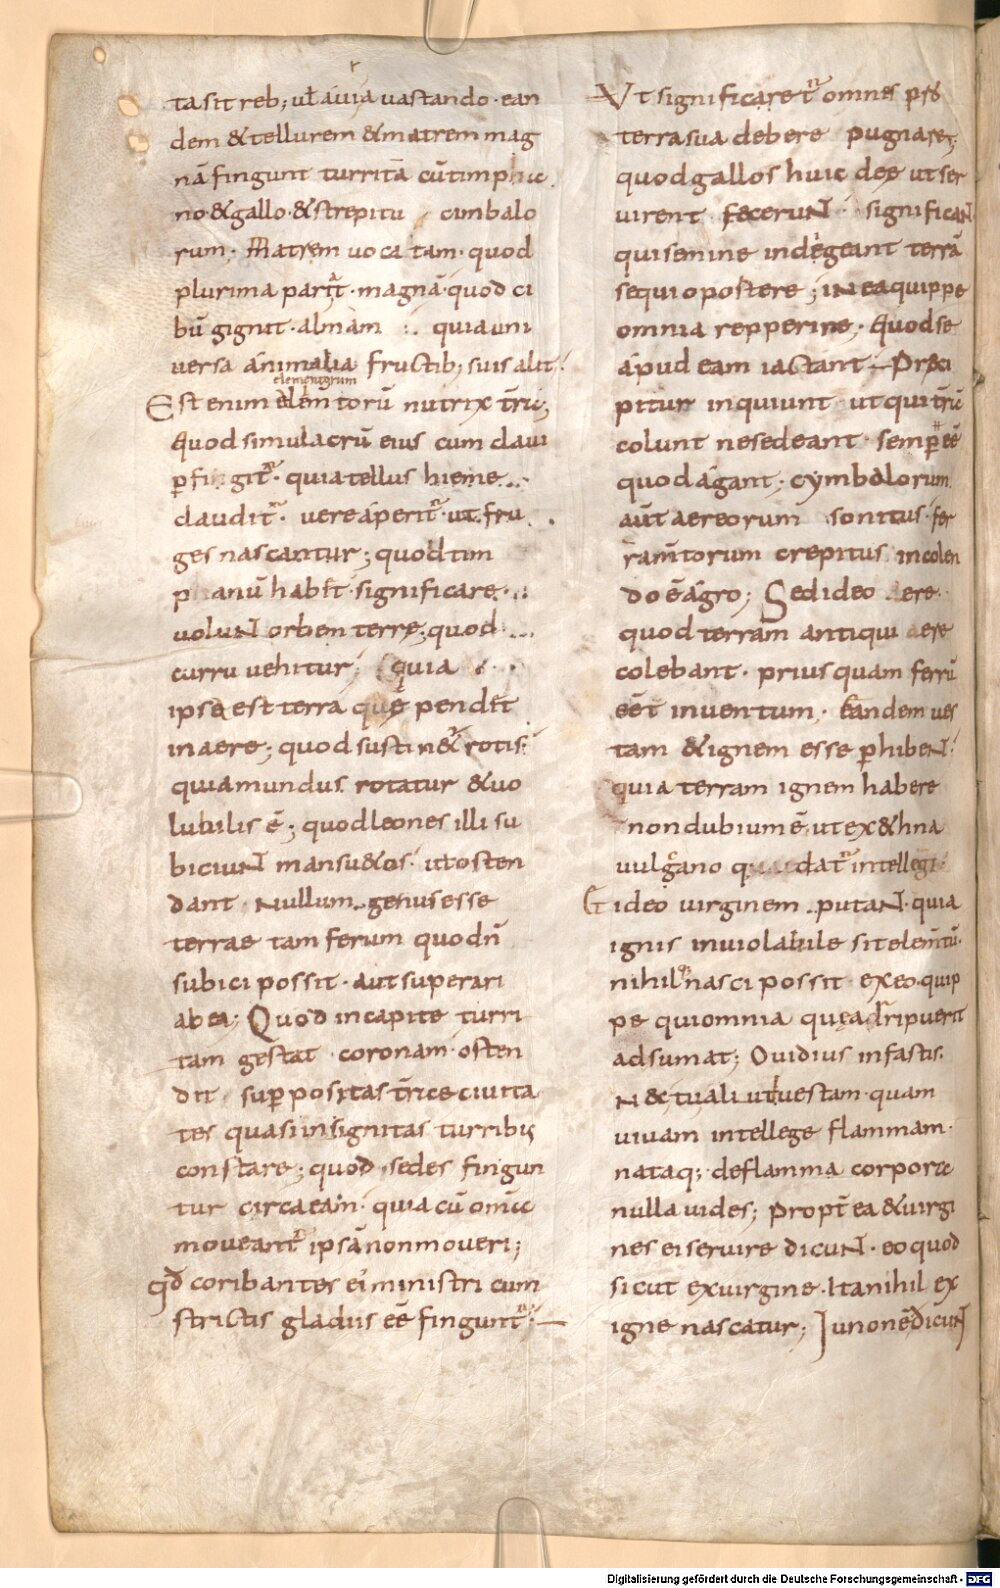 ta sit reb; ul auia uastando· ean
dem & tellurem & matrem mag
nā fingunt turritā cū timpa
no & gallo· & strepitu cimbalo
rum· Matrem uocatam· quod
plurima pariat· magnā· quod ci
bū gignit· almam quia uni
uersa animalia fructib; suis alit·
elementorum
Est enim elemtorū nutrix trę;
Quod simulacrū eius cum claui
fingitr· quia tellus hieme
clauditr· uere aperitr· ut fru
ges nascantur; quod tim
anū habet· significare·
uoluNt orbem terrę; quod
curru uehitur; quia
ipsa est terra quę pendet
in aere; quod sustin&r rotis·
quia mundus rotatur & uo
lubilis ē; quod leones illi su
biciuNt mansu&os· ut osten
dant Nullum genus esse
terrae tam ferum quod ñ
subici possit· aut superari
ab ea; Quod in capite turri
tam gestat coronam· osten
dit suppositas trae ciuita
tes quasi insignitas turribus
constare; quod sedes fingun
tur circa eam· quia cū omīa
moueantr ipsā non moueri;
qd coribantes ei ministri cum
strictis gladiis eē finguntr·
Vt significaretr omnes p
terra sua debere pugnare;
quod gallos huic deę ut ser
uirent fecerunt· significaNt
qui semine indigeant terrā
sequi oportere; iN ea quippe
omnia repperire; Quod se
apud eam iactant Praeci
pitur inquiunt ut qui trā
colunt ne sedeant· semp eē
quod agant; cymbalorum
aut aereorum sonitus· fer
ramtorum crepitus in colen
do ē agro; Sed ideo aere·
quod terram antiqui aere
colebant· prius quam ferrū
eēt inuentum· Eandem ues
tam & ignem esse phibeNt·
quia terram ignem habere
non dubium ē· ut ex &hna
uulgano datr intellegi·
Et ideo uirginem putaNt· quia
ignis inuiolabile sit elemtū·
nihilq; nasci possit ex eo· quip
pe qui omnia quę adripuerit
adsumat; Ouidius in fastis·
N& tu aliut uestam· quam
uiuam intellege flammam·
nataq; de flamma corpora
nulla uides; Propt ea & uirgi
nes ei seruire dicuNt· eo quod
sicut ex uirgine· Ita nihil ex
igne nascatur; Iunonē dicuNt
Digitalisierung gefördert durch die Deutsche Forschungsgemeinschaft - DFG